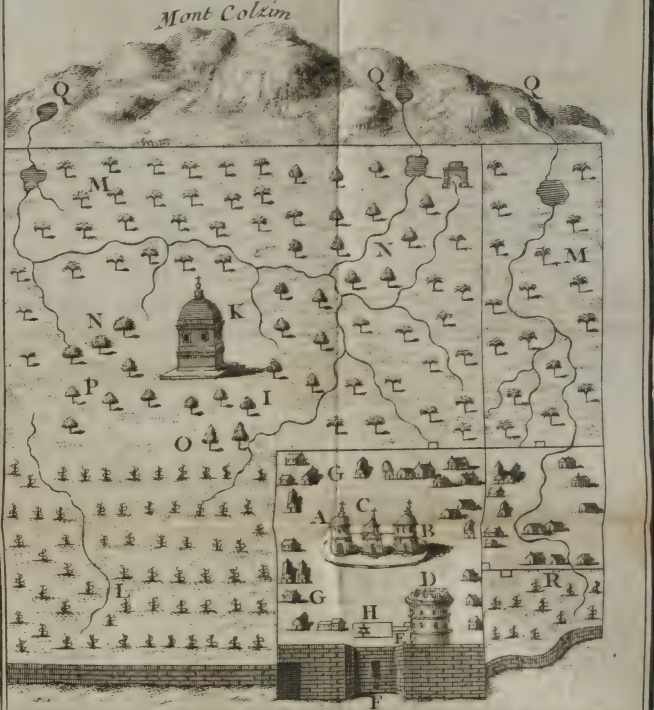 Mont Colzim
Q Q Q
M
N
M
K
N
P
I
O
G
C
A
B
L
G
D
R
H
E
F